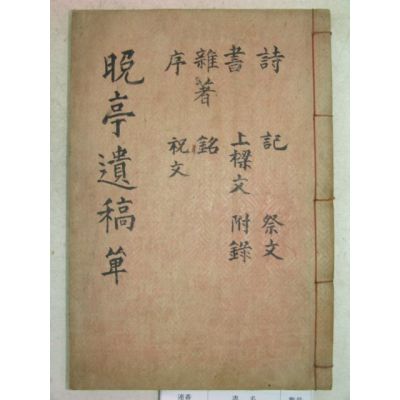 詩 記 祭文
書 上樑文 附錄
雜著 銘
序 祝文
晩亭遺稿單